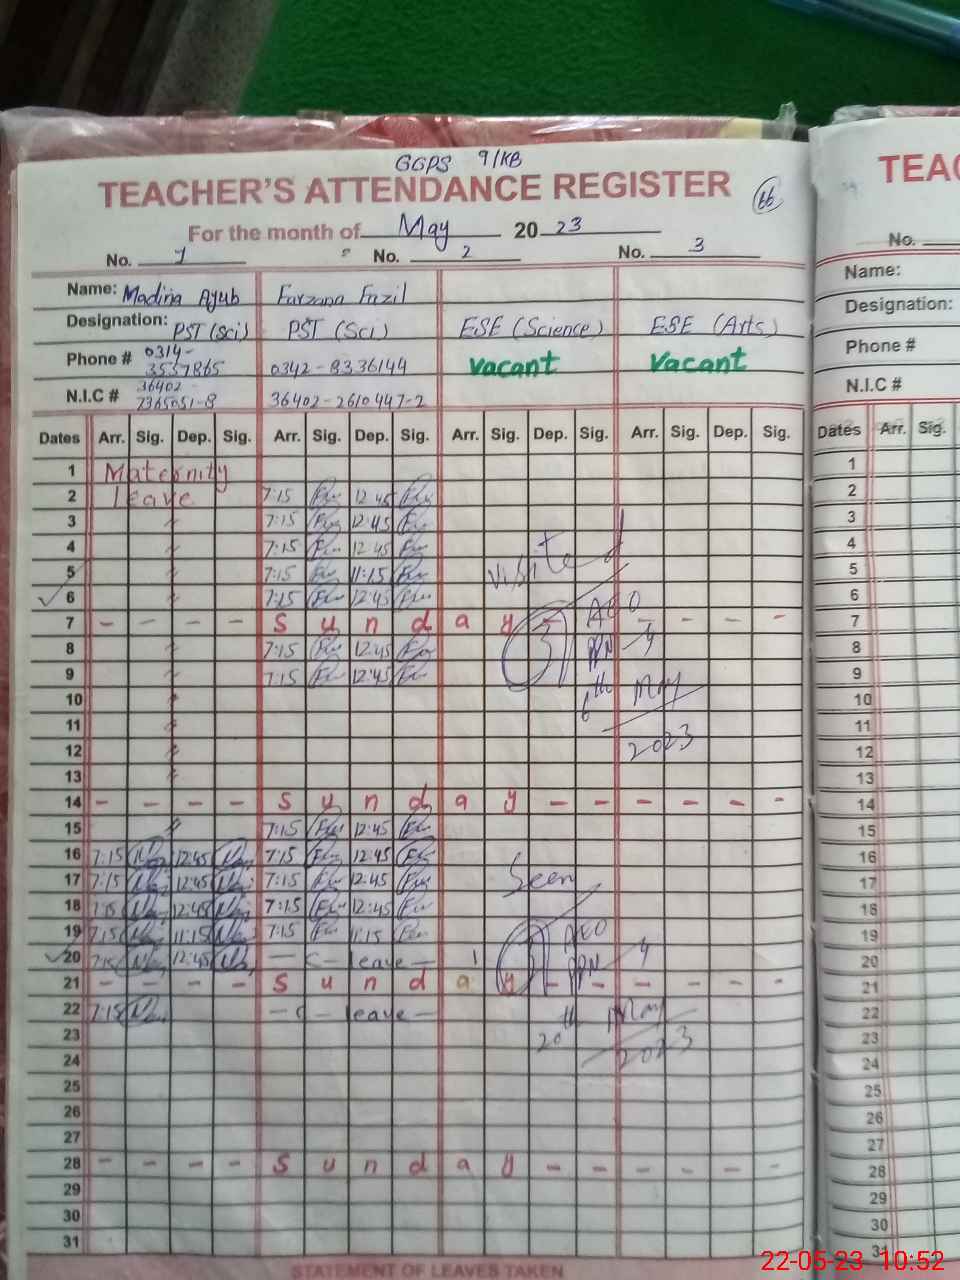 GGPS 9/KB
TEACHER'S ATTENDANCE REGISTER
66
For the month of May 20 23
No. 1 No. 2 No. 3
Name: Madina Ayub Farzana Fazil
Designation: PST (Sci) PST (Sci) ESE (Science) ESE (Arts)
Phone # 0314-3557865 0342-8336144 Vacant Vacant
N.I.C # 36402-7365051-8 36402-2610447-2
Dates Arr. Sig. Dep. Sig. Arr. Sig. Dep. Sig. Arr. Sig. Dep. Sig. Arr. Sig. Dep. Sig.
1 Maternity
2 leave 7:15 12:45
3 7:15 12:45
4 7:15 12:45 visited
5 7:15 11:15
6 7:15 12:45
7 - - - - S u n d a y - - - - - -
AEO
8 7:15 12:45
PPN - 4
9 7:15 12:45
10 6th May
11
12 2023
13
14 - - - - S u n d a y - - - - - -
15 7:15 12:45
16 7:15 12:45 7:15 12:45
17 7:15 12:45 7:15 12:45 Seen
18 7:15 12:45 7:15 12:45
19 7:15 11:15 7:15 11:15 AEO
20 7:15 12:45 - C - leave - PPN - 4
21 - - - - S u n d a y - - - - - -
22 7:15 - C - leave - 20th May
23 2023
24
25
26
27
28 - - - - S u n d a y - - - - - -
29
30
31
STATEMENT OF LEAVES TAKEN
TEAC
No.
Name:
Designation:
Phone #
N.I.C #
Dates Arr. Sig.
1
2
3
4
5
6
7
8
9
10
11
12
13
14
15
16
17
18
19
20
21
22
23
24
25
26
27
28
29
30
31
22-05-23 10:52